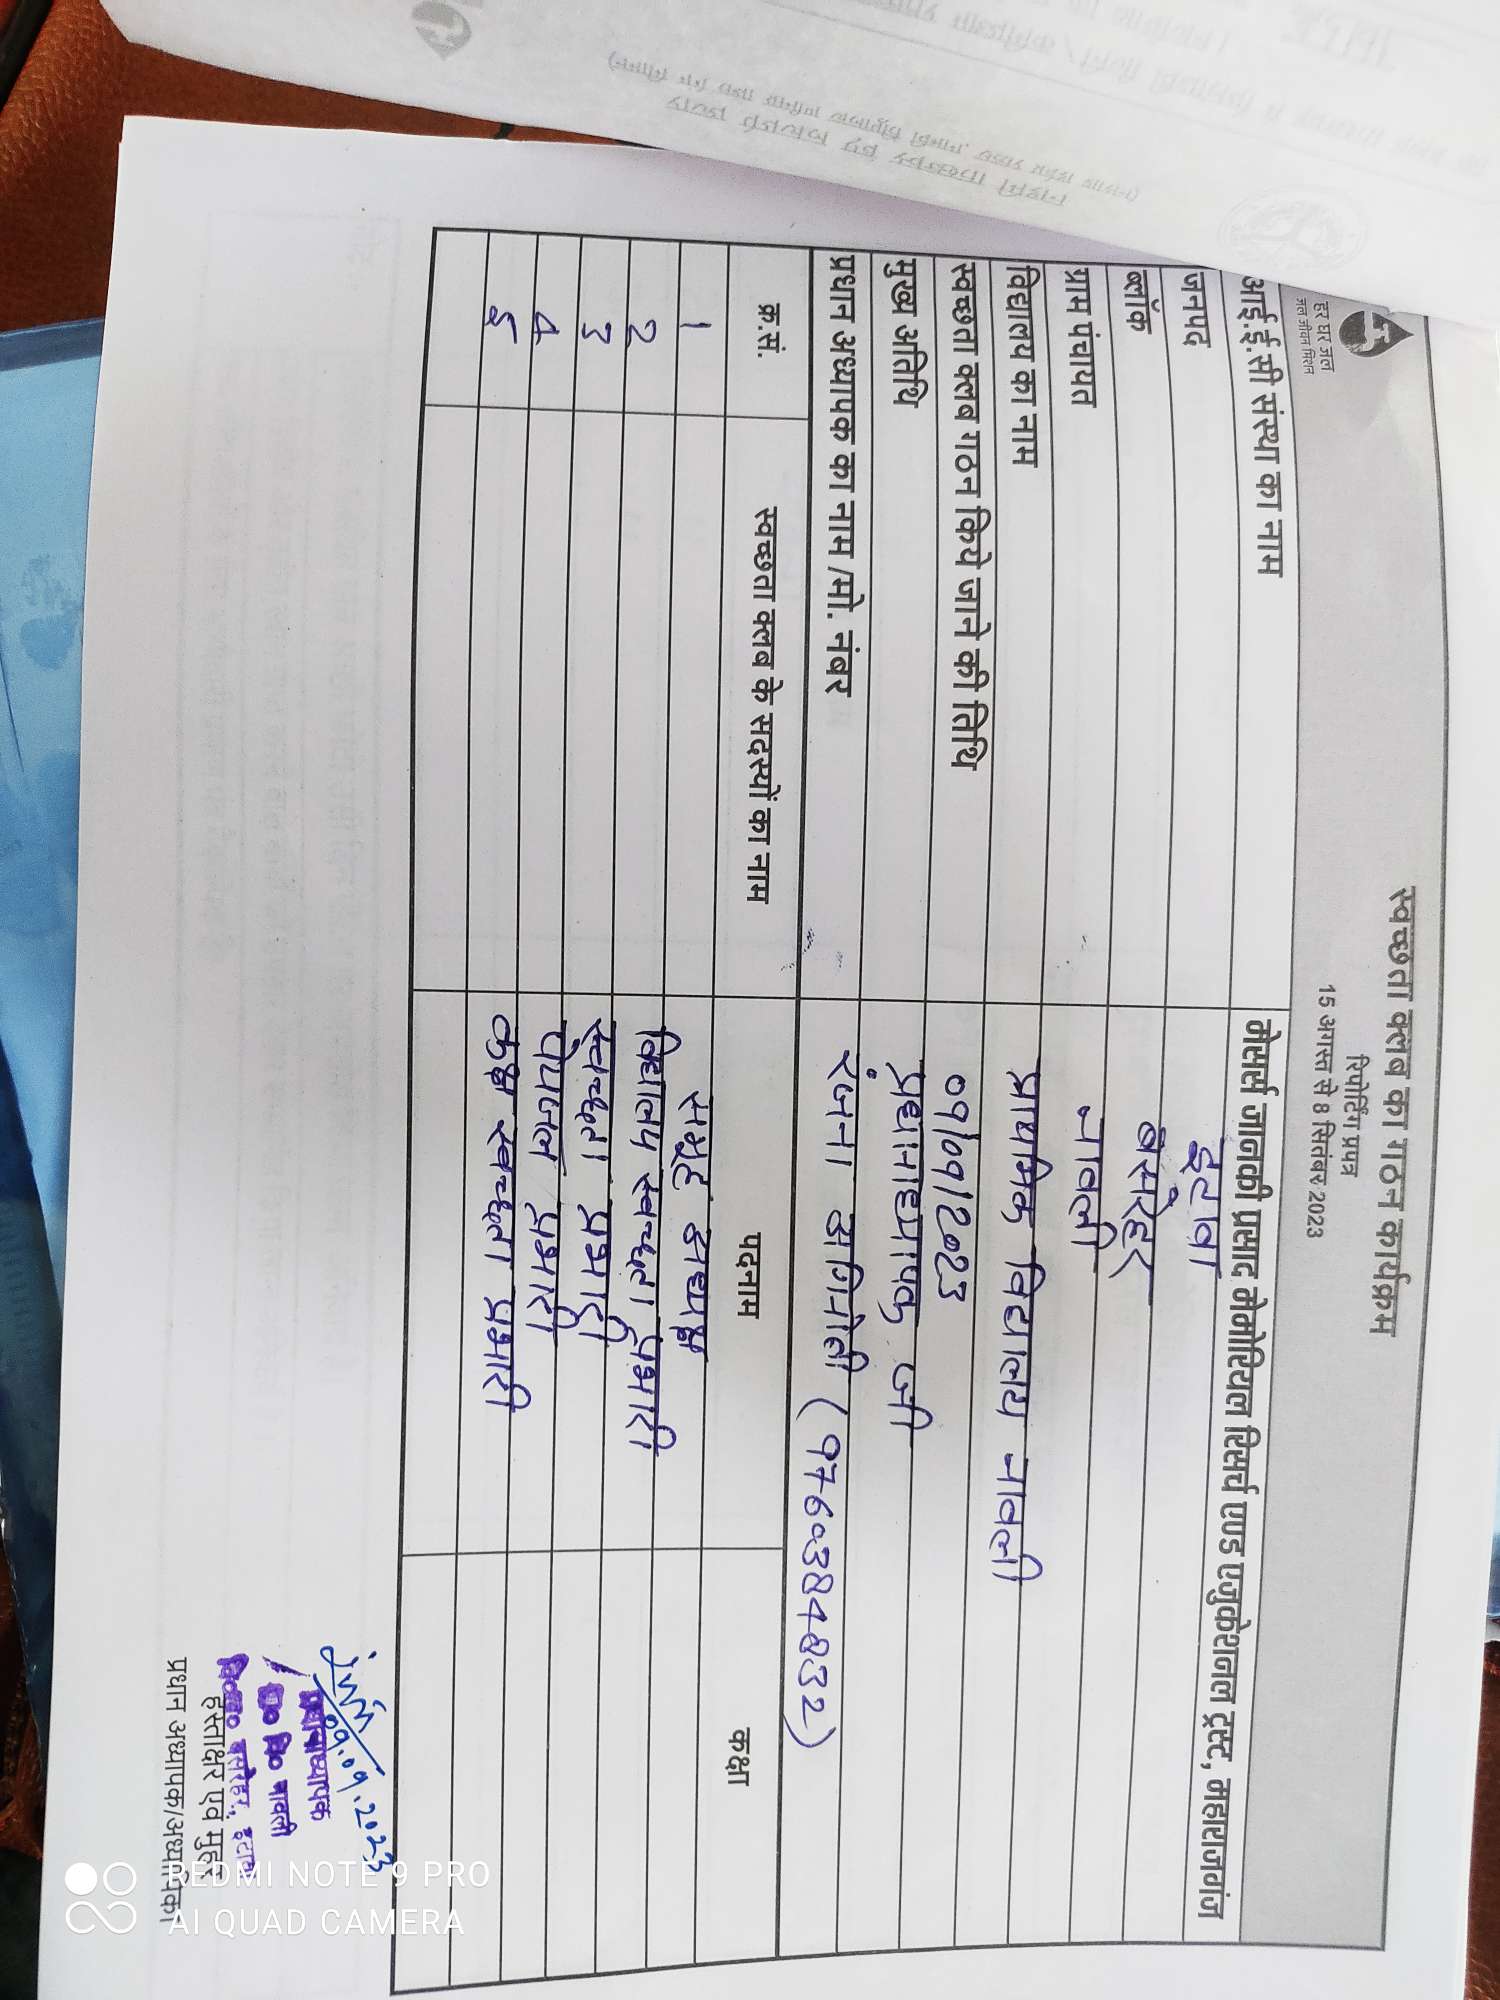 हर घर जल
जल जीवन मिशन
स्वच्छता क्लब का गठन कार्यक्रम
रिपोर्टिंग प्रपत्र
15 अगस्त से 8 सितंबर 2023
आई.ई.सी संस्था का नाम मेसर्स जानकी प्रसाद मेमोरियल रिसर्च एण्ड एजुकेशनल ट्रस्ट, महाराजगंज
जनपद इटावा
ब्लॉक बसरेहर
ग्राम पंचायत नावली
विद्यालय का नाम प्राथमिक विद्यालय नावली
स्वच्छता क्लब गठन किये जाने की तिथि 09/09/2023
मुख्य अतिथि प्रधानाध्यापक जी
प्रधान अध्यापक का नाम /मो. नंबर रंजना अगिनोली (9760384832)
क्र.सं. स्वच्छता क्लब के सदस्यों का नाम पदनाम कक्षा
1 समूह अध्यक्ष
2 विद्यालय स्वच्छता प्रभारी
3 स्वच्छता प्रभारी
4 पेयजल प्रभारी
5 कक्ष स्वच्छता प्रभारी
09.09.2023
प्रधानाध्यापक
प्रा० वि० नावली
वि०ख० बसरेहर, इटावा
हस्ताक्षर एवं मुहर
प्रधान अध्यापक/अध्यापिका
REDMI NOTE 9 PRO
AI QUAD CAMERA